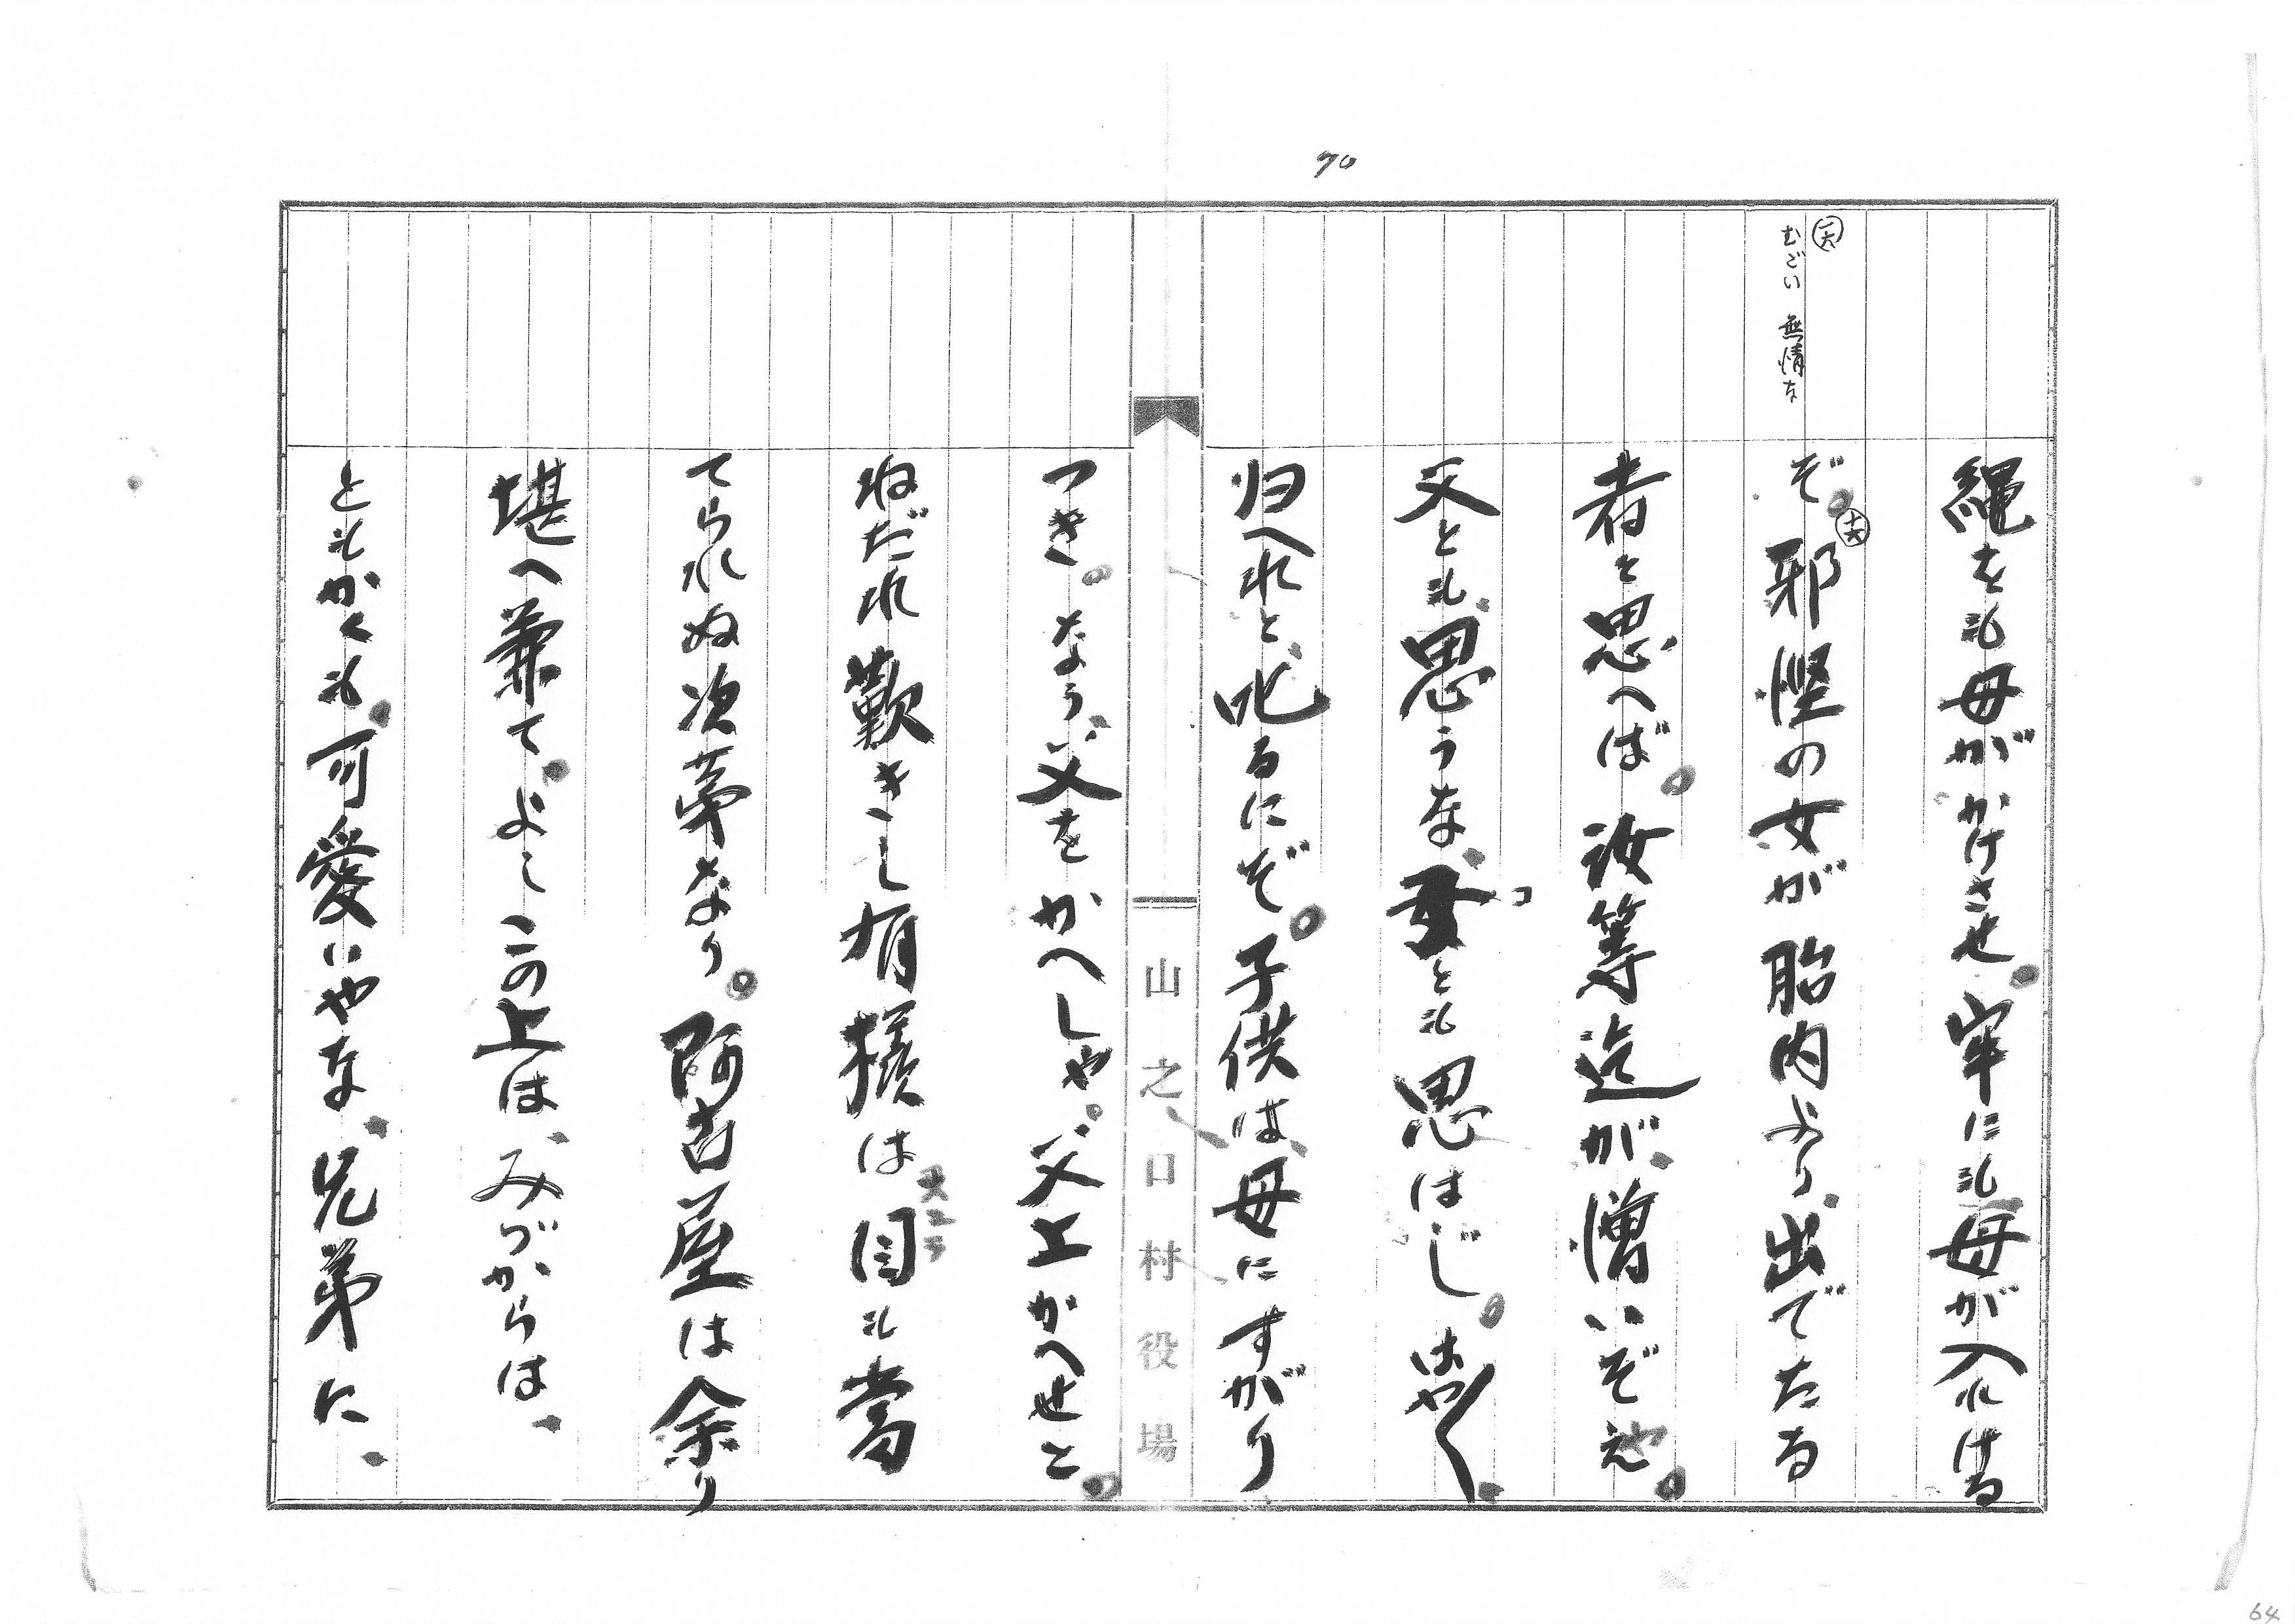 70
㊅
むごい 無情な
縄をも母がかけさせ。牢にも母が入れける
ぞ。邪慳の女が胎内より、出でたる
者と思へば。汝等迄が、憎いぞゑ。
父とも、思うな、母とも思はじ。はや〱、
归へれと、叱るにぞ。子供は、母にすがり
つき。なう、父をかへしや。父上かへせと。
ねだれ歎きし有様は目も当
てられぬ次第なり。阿古屋は余り
堪へ兼て。よしこの上は、みづからは、
ともかくも、可愛いやな、兄弟に、
山之口村役場
64